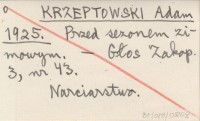 KRZEPTOWSKI Adam
1925. Przed sezonem zi-
mowym. — Głos Zakop.
3, nr 43.
Narciarstwo.